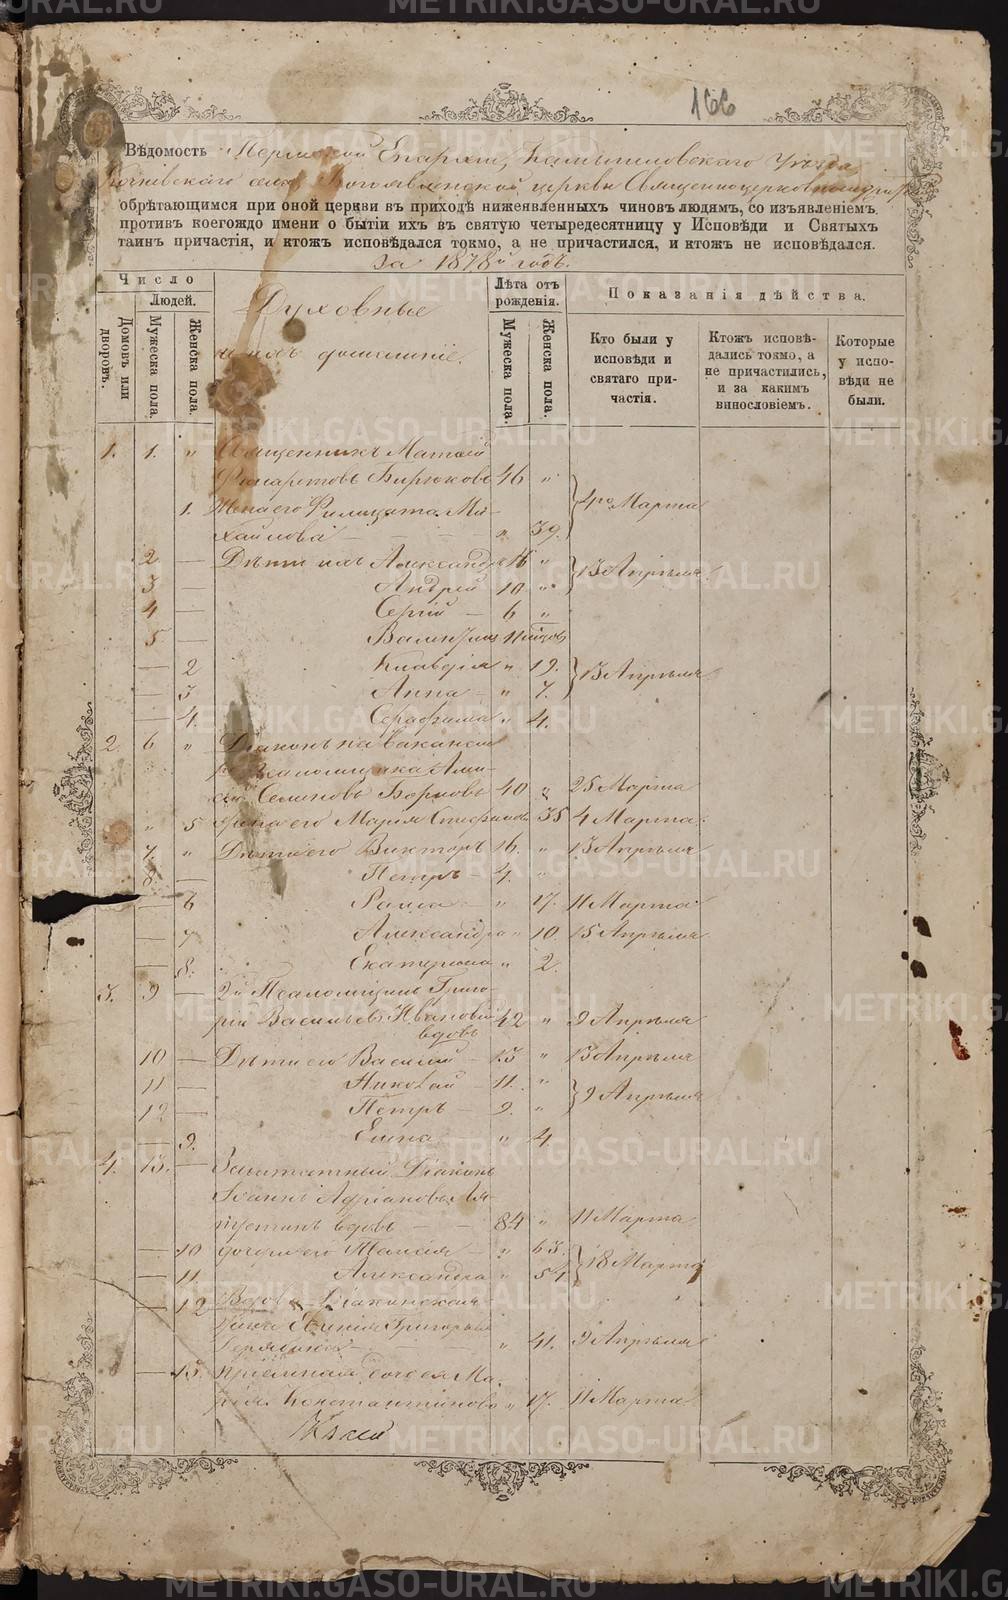 166
Вѣдомость Пермской Епархіи, Камышловскаго Уѣзда
села Богоявленской церкви Священноцерковнослужи
обрѣтающимся при оной церкви въ приходѣ нижеявленныхъ чиновъ людямъ, со изъявленіемъ
противъ коегождо имени о бытіи ихъ въ святую четыредесятницу у Исповѣди и Святыхъ
таинъ причастія, и ктожъ исповѣдался токмо, а не причастился, и ктожъ не исповѣдался.
За 1878й годъ.
Число
Людей.
Домовъ или дворовъ.
Мужеска пола.
Женска пола.
Духовные
и ихъ домашніе.
Лѣта отъ рожденія.
Мужеска пола.
Женска пола.
Показанія дѣйства.
Кто были у исповѣди и святаго причастія.
Ктожъ исповѣдались токмо, а не причастились, и за какимъ винословіемъ.
Которые у исповѣди не были.
1. 1. " Священникъ Матѳій
Бирюковъ 46 "
4го Марта
1. Жена его Филицата Ми-
хайлова — " 39.
2 — Дѣти ихъ Александръ 16 "
13 Апрѣля
3 — Андрей 10 "
4 — Сергій — 6 "
5 — Валентинъ
— 2 Клавдія " 12.
13 Апрѣля
— 3 Анна — " 7.
— 4. Серафима " 4.
2. 6 " Діаконъ на вакансіи
Псаломщика Але-
ксѣй Семеновъ 40 " 25 Марта
" 5 Жена его Марія Стефанова 35 4 Марта
7. " Дѣти его Викторъ 16. " 13 Апрѣля
8 — Петръ 4. "
— 6 Раиса — " 17. 11 Марта
— 7 Александра " 10 15 Апрѣля
— 8. Екатерина " 2.
3. 9 — 2й Псаломщикъ Григо-
рій Васильевъ Ивановскій
вдовъ 42 " 9 Апрѣля
10 — Дѣти его Василій — 13 " 13 Апрѣля
11 — Николай — 11. "
9 Апрѣля
12 — Петръ — 9. "
— 9. Елена " 4
4. 13. — Заштатный Діаконъ
Іоаннъ Адріановъ Ля-
пустинъ вдовъ — — 84 " 11 Марта
— 10 дочери его Таисія — " 63.
18 Марта
— 11 Александра " 54
— 12 Вдова Діаконская
Григорьева
— " 41. 9 Апрѣля
— 13. Пріемная дочь ея Ма-
рія Константинова " 17. 11 Марта